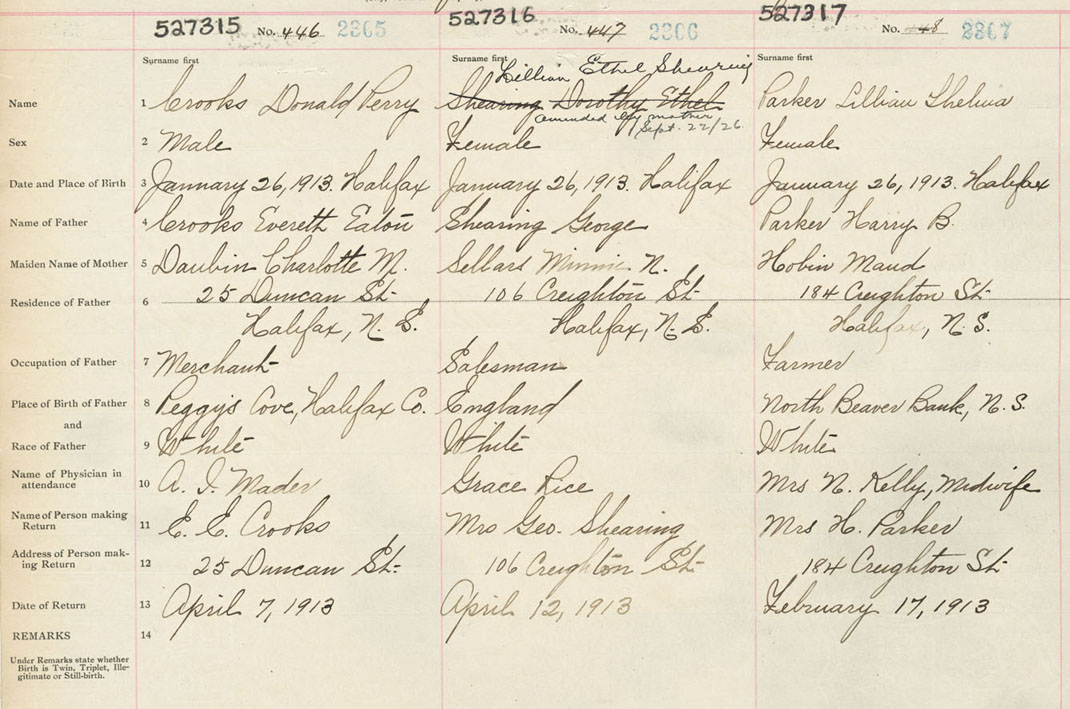 527315 No. 446 2365
527316 No. 447 2366
527317 No. 448 2367
Surname first
Surname first
Surname first
Lillian Ethel Shearing
Name 1 Crooks Donald Perry
Shearing Dorothy Ethel
Parker Lillian Thelma
amended by mother
Sept. 22/26
Sex 2 Male Female Female
Date and Place of Birth 3 January 26, 1913. Halifax January 26, 1913. Halifax January 26, 1913. Halifax
Name of Father 4 Crooks Everett Eaton Shearing George Parker Harry B.
Maiden Name of Mother 5 Daubin Charlotte M. Sellars Minnie N. Hobin Maud
Residence of Father 6 25 Duncan St. 106 Creighton St. 184 Creighton St.
Halifax, N.S. Halifax, N.S. Halifax, N.S.
Occupation of Father 7 Merchant Salesman Farmer
Place of Birth of Father 8 Peggys Cove, Halifax Co. England North Beaver Bank, N.S.
and
Race of Father 9 White White White
Name of Physician in
attendance 10 A. I. Mader Grace Rice Mrs N. Kelly, Midwife
Name of Person making
Return 11 E. E. Crooks Mrs Geo. Shearing Mrs H. Parker
Address of Person mak-
ing Return 12 25 Duncan St. 106 Creighton St. 184 Creighton St.
Date of Return 13 April 7, 1913 April 12, 1913 February 17, 1913
REMARKS 14
Under Remarks state whether
Birth is Twin, Triplet, Ille-
gitimate or Still-birth.